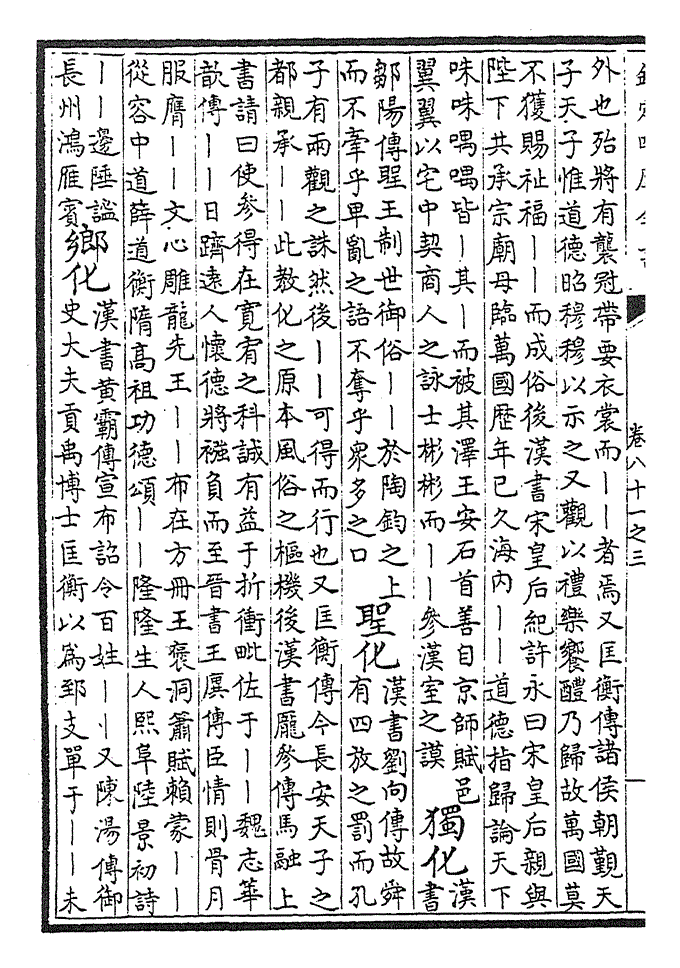 卷八十一之三
外也殆將有襲冠帶要衣裳而——者焉又匡衡傳諸侯朝覲天
子天子惟道德昭穆穆以示之又觀以禮樂饗醴乃歸故萬國莫
不獲賜祉福——而成俗後漢書宋皇后紀許永曰宋皇后親與
陛下共承宗廟母臨萬國歴年已久海内——道德指歸論天下
味味喁喁皆—其—而被其澤王安石首善自京師賦邑
翼翼以宅中契商人之詠士彬彬而——參漢室之謨
獨化
漢
書
鄒陽傳聖王制世御俗——於陶鈞之上
而不牽乎卑亂之語不奪乎衆多之口
聖化
漢書劉向傳故舜
有四放之罰而孔
子有兩觀之誅然後——可得而行也又匡衡傳今長安天子之
都親承——此教化之原本風俗之樞機後漢書龎參傳馬融上
書請曰使參得在寛宥之科誠有益于折衝毗佐于——魏志華
歆傳——日躋遠人懷德將襁負而至晉書王廙傳臣情則骨月
服膺——文心雕龍先王——布在方冊王褒洞簫賦賴蒙——
從容中道薛道衡隋高祖功德頌——隆隆生人熙阜陸景初詩
——邊陲謐
長州鴻雁賓
鄉化
漢書黄霸傳宣布詔令百姓——又陳湯傳御
史大夫貢禹博士匡衡以為郅支單于——未